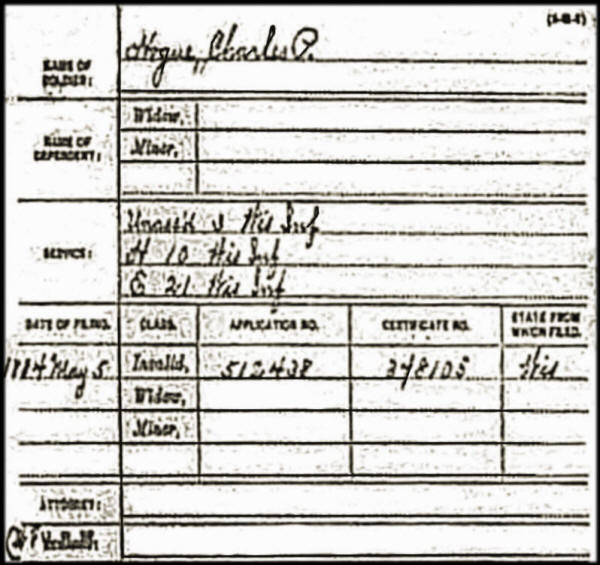 (3-11-1)
NAME OF SOLDIER: Hogue, Charles P.
NAME OF DEPENDENT: Widow,
Minor,
SERVICE: Unassd 3 Wis Inf
H 10 Wis Inf
E 21 Wis Inf
DATE OF FILING. CLASS. APPLICATION NO. CERTIFICATE NO. STATE FROM WHICH FILED.
1884 May 5 Invalid, 512438 378105 Wis
Widow,
Minor,
ATTORNEY: